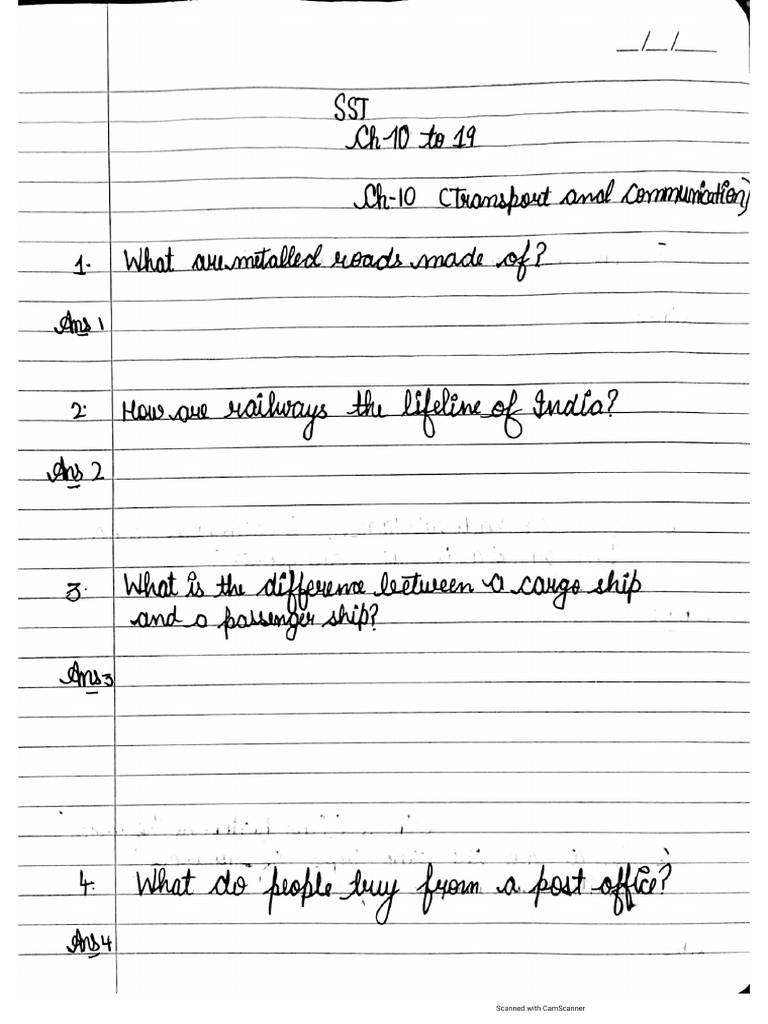 _/_/_
SST
Ch-10 to 19
Ch-10 (Transport and Communication)
1. What are metalled roads made of?
Ans 1
2. How are railways the lifeline of India?
Ans 2
3. What is the difference between a cargo ship
and a passenger ship?
Ans 3
4. What do people buy from a post office?
Ans 4
Scanned with CamScanner